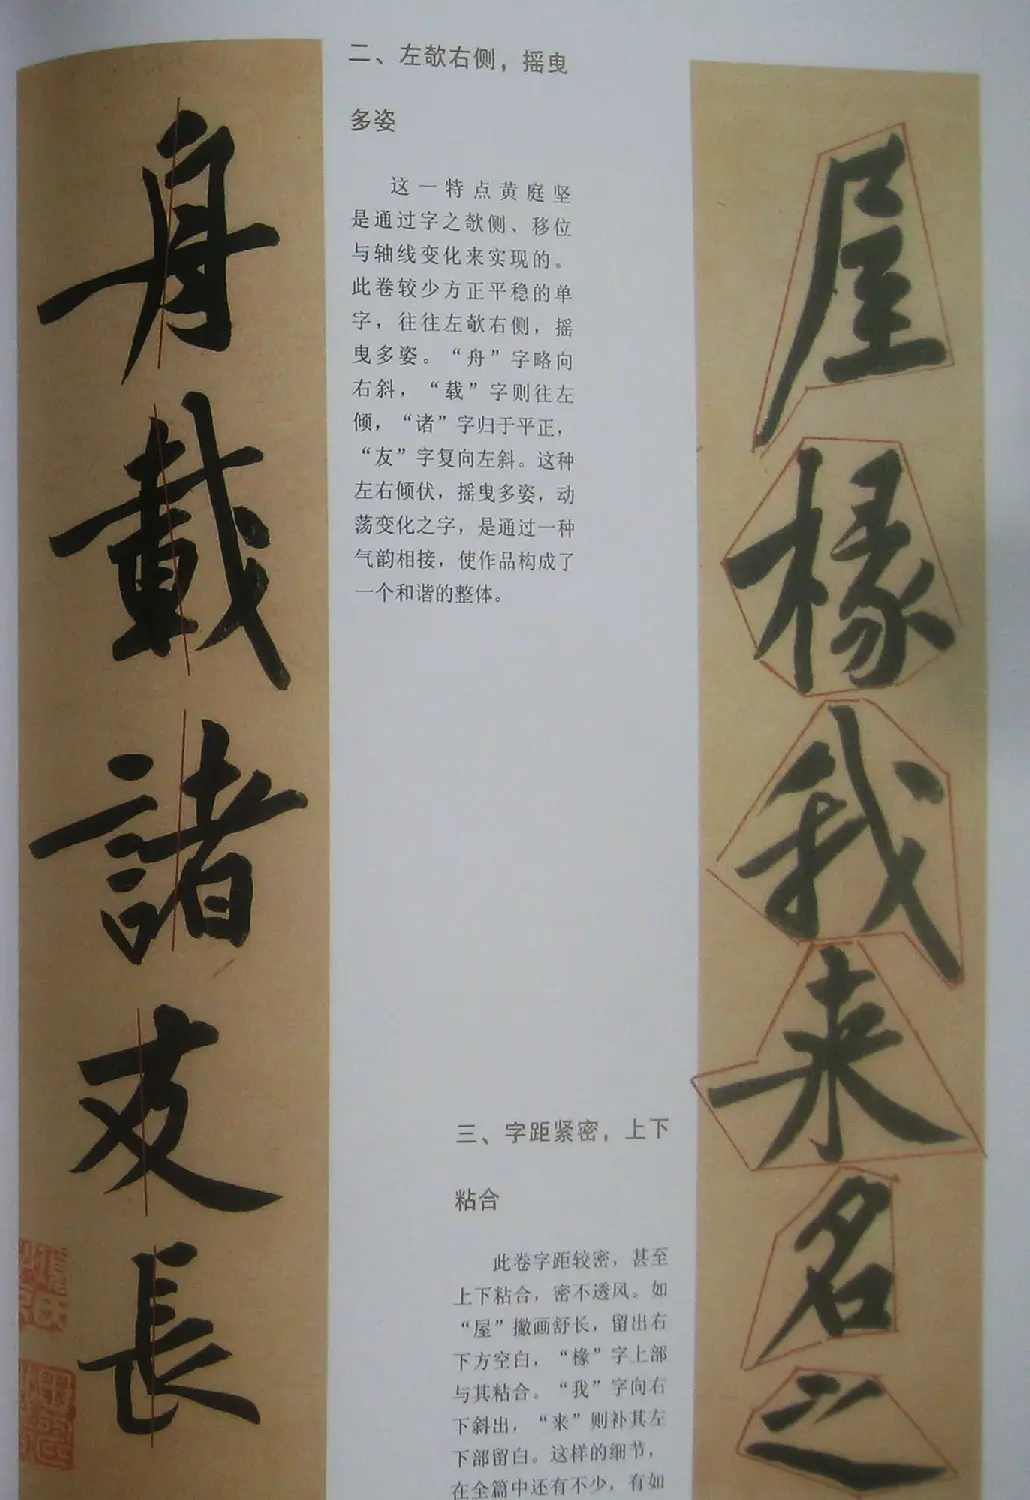 舟載諸友長
二、左欹右侧，摇曳
多姿
这一特点黄庭坚
是通过字之欹侧、移位
与轴线变化来实现的。
此卷较少方正平稳的单
字，往往左欹右侧，摇
曳多姿。“舟”字略向
右斜，“载”字则往左
倾，“诸”字归于平正，
“友”字复向左斜。这种
左右倾伏，摇曳多姿，动
荡变化之字，是通过一种
气韵相接，使作品构成了
一个和谐的整体。
三、字距紧密，上下
粘合
此卷字距较密，甚至
上下粘合，密不透风。如
“屋”撇画舒长，留出右
下方空白，“椽”字上部
与其粘合。“我”字向右
下斜出，“来”则补其左
下部留白。这样的细节，
在全篇中还有不少，有如
屋椽我来名之